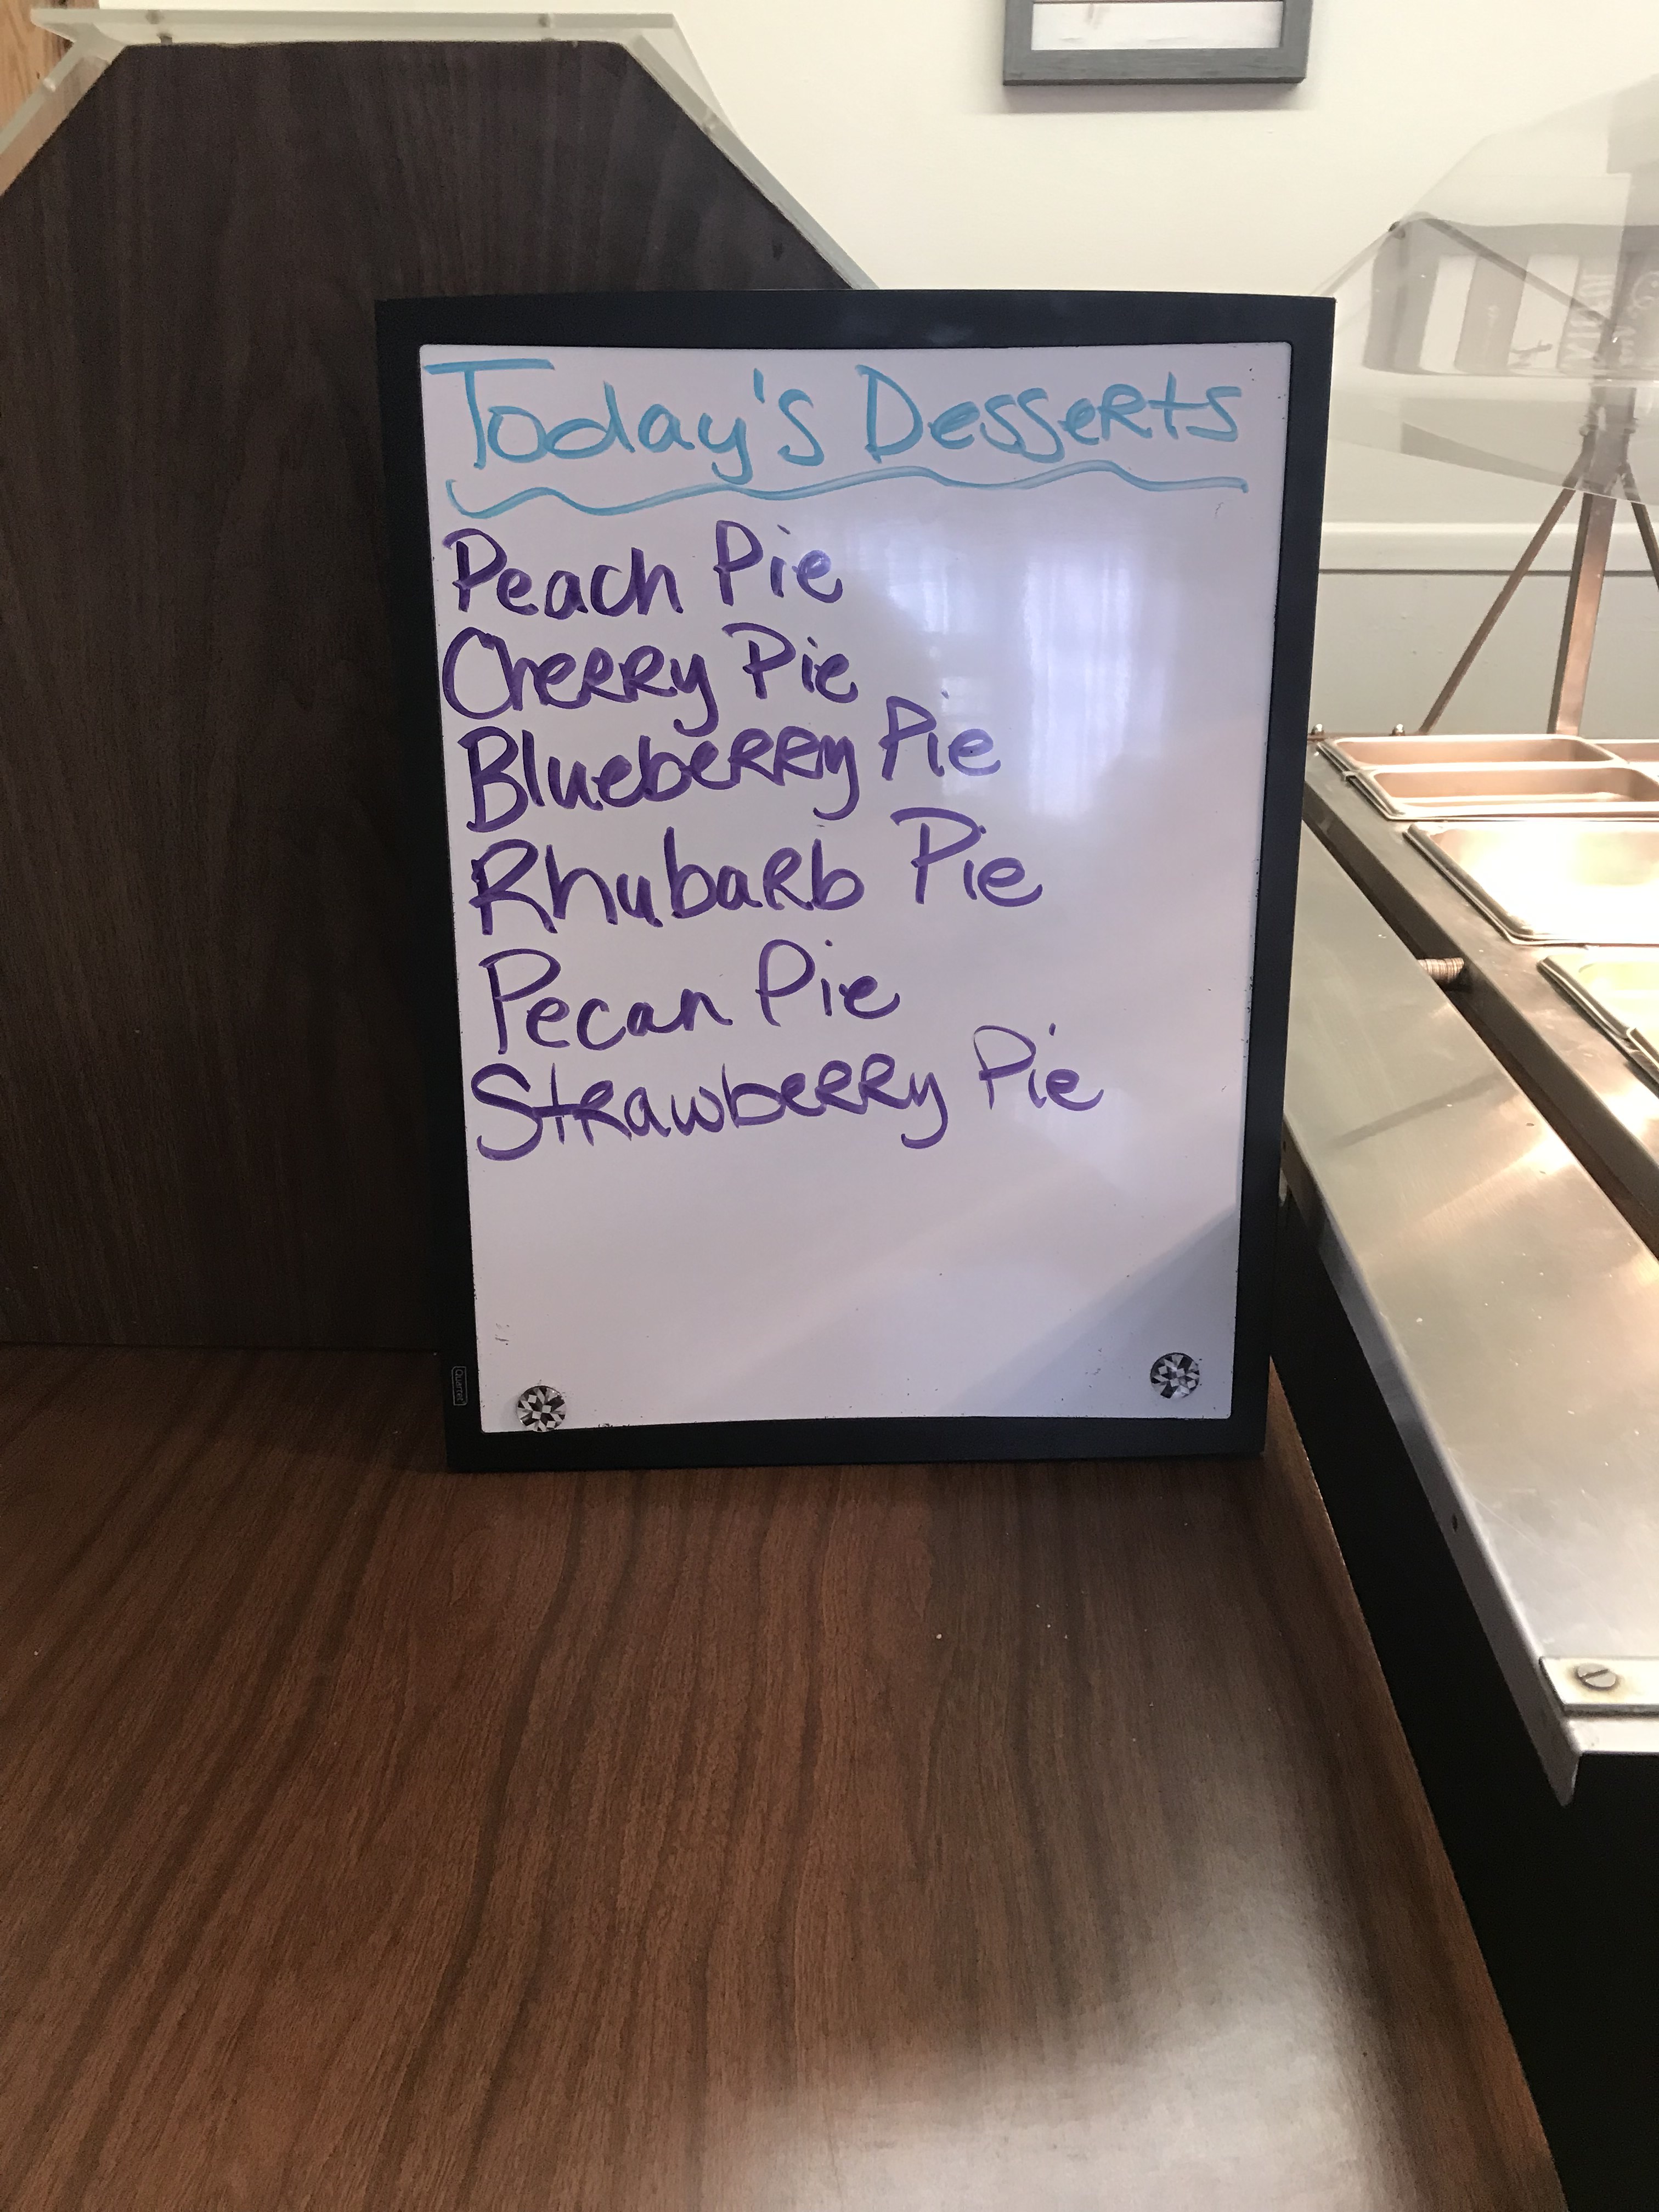 Today's Desserts
Peach Pie
Cherry Pie
Blueberry Pie
Rhubarb Pie
Pecan Pie
Strawberry Pie
Quartet